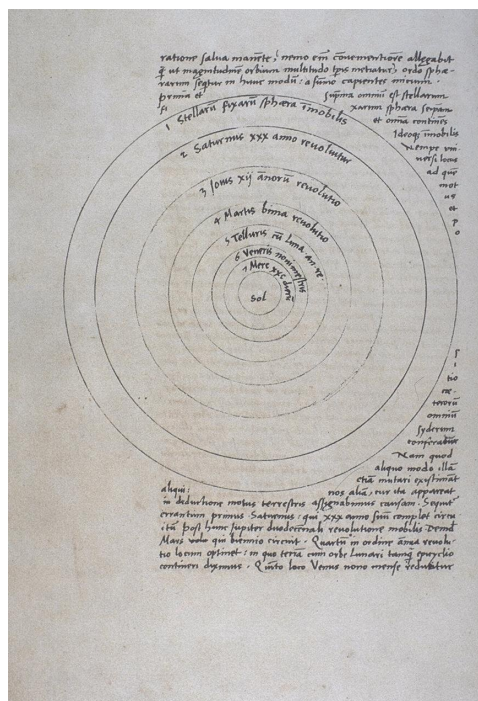 ratione salva manēte, nemo em̄ convenientiorē allegabit
q̄ ut magnitudinē orbium multitudo tp̄is metiatur, ordo sphæ-
rarum sequitur in hunc modū: a sūmo capientes initium.
prima et sūprema omniū est stellarum
fi xarum sphæra seipsam
et omīa continēs
Ideoqȝ īmobilis
Nempe uni
versi locus
ad quē
mot
us
et
p
o
1 Stellarū fixarū sphæra īmobilis
2 Saturnus xxx anno revolvitur
3 Jovis xij annorū revolutio
4 Martis bima revolutio
5 Telluris cū Luna an. re
6 Veneris nonimestris
7 Merc xxc dierū
Sol
s
i
tio
ce-
terorū
omniū
syderum
conferatur
Nam quod
aliquo modo illā
etiā mutari existimāt
aliqui: nos aliā, cur ita appareat
in deductione motus terrestris assignabimus causam. Sequit̄
errantium primus Saturnus: qui xxx anno suū complet circu
itū post hunc Jupiter duodecennali revolutione mobilis Deind̄
Mars qui biennio circuit. Quartū in ordine annua revolu-
tio locum optinet: in quo terrā cum orbe Lunari tamq̄ epicyclio
contineri diximus. Quinto loco Venus nono mense reducitur